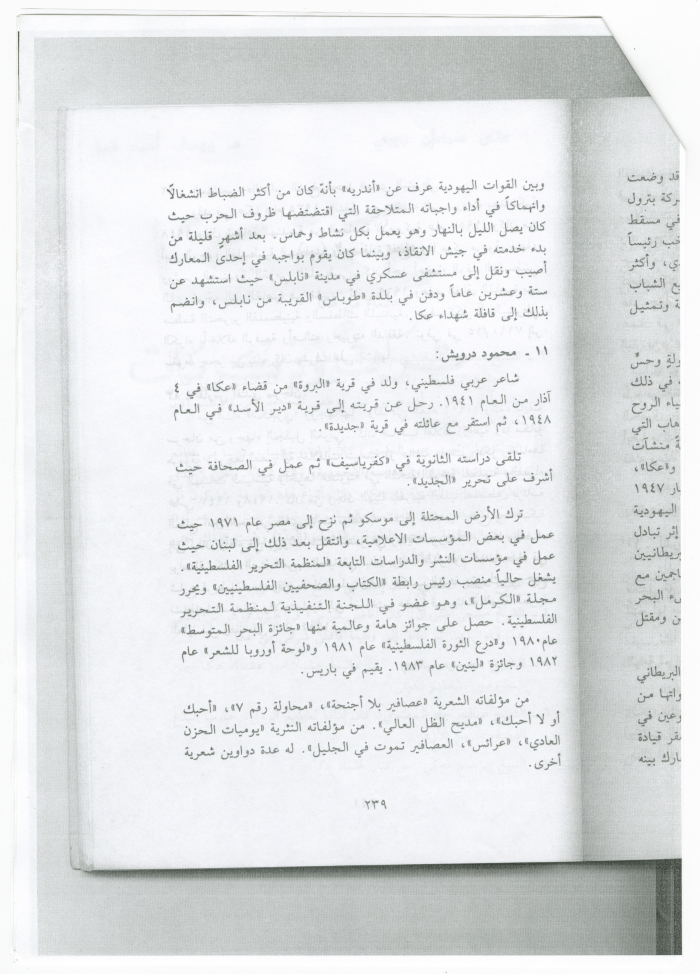 وبين القوات اليهودية عرف عن «أندريه» بأنة كان من أكثر الضباط انشغالاً
وانهماكاً في أداء واجباته المتلاحقة التي اقتضتضها ظروف الحرب حيث
كان يصل الليل بالنهار وهو يعمل بكل نشاط وحماس. بعد أشهرٍ قليلة من
بدء خدمته في جيش الانقاذ، وبينما كان يقوم بواجبه في إحدى المعارك
أصيب ونقل إلى مستشفى عسكري في مدينة «نابلس» حيث استشهد عن
ستة وعشرين عاماً ودفن في بلدة «طوباس» القريبة من نابلس، وانضم
بذلك إلى قافلة شهداء عكا.
١١ ـ محمود درويش:
شاعر عربي فلسطيني، ولد في قرية «البروة» من قضاء «عكا» في ٤
آذار من العام ١٩٤١. رحل عن قريته إلى قرية «دير الأسد» في العام
١٩٤٨، ثم استقر مع عائلته في قرية «جديدة».
تلقى دراسته الثانوية في «كفرياسيف» ثم عمل في الصحافة حيث
أشرف على تحرير «الجديد».
ترك الأرض المحتلة إلى موسكو ثم نزح إلى مصر عام ١٩٧١ حيث
عمل في بعض المؤسسات الاعلامية، وانتقل بعد ذلك إلى لبنان حيث
عمل في مؤسسات النشر والدراسات التابعة «لمنظمة التحرير الفلسطينية».
يشغل حالياً منصب رئيس رابطة «الكتاب والصحفيين الفلسطينيين» ويحرر
مجلة «الكرمل»، وهو عضو في اللجنة التنفيذية لمنظمة التحرير
الفلسطينية. حصل على جوائز هامة وعالمية منها «جائزة البحر المتوسط»
عام ١٩٨٠ و«درع الثورة الفلسطينية» عام ١٩٨١ و«لوحة أوروبا للشعر» عام
١٩٨٢ وجائزة «لينين» عام ١٩٨٣. يقيم في باريس.
من مؤلفاته الشعرية «عصافير بلا أجنحة»، «محاولة رقم ٧»، «أحبك
أو لا أحبك»، «مديح الظل العالي». من مؤلفاته النثرية «يوميات الحزن
العادي»، «عرائس»، العصافير تموت في الجليل». له عدة دواوين شعرية
أخرى.
٢٣٩
قد وضعت
ركة بترول
في مسقط
خب رئيساً
ي، وأكثر
ع الشباب
ة وتمثيل
ولةٍ وحسٍّ
، في ذلك
ياء الروح
هاب التي
ةً منشآت
و«عكا»،
ار ١٩٤٧
اليهودية
إثر تبادل
بريطانيين
اجمين مع
ىء البحر
ن ومقتل
البريطاني
واتها من
وعين في
قر قيادة
ارك بينه